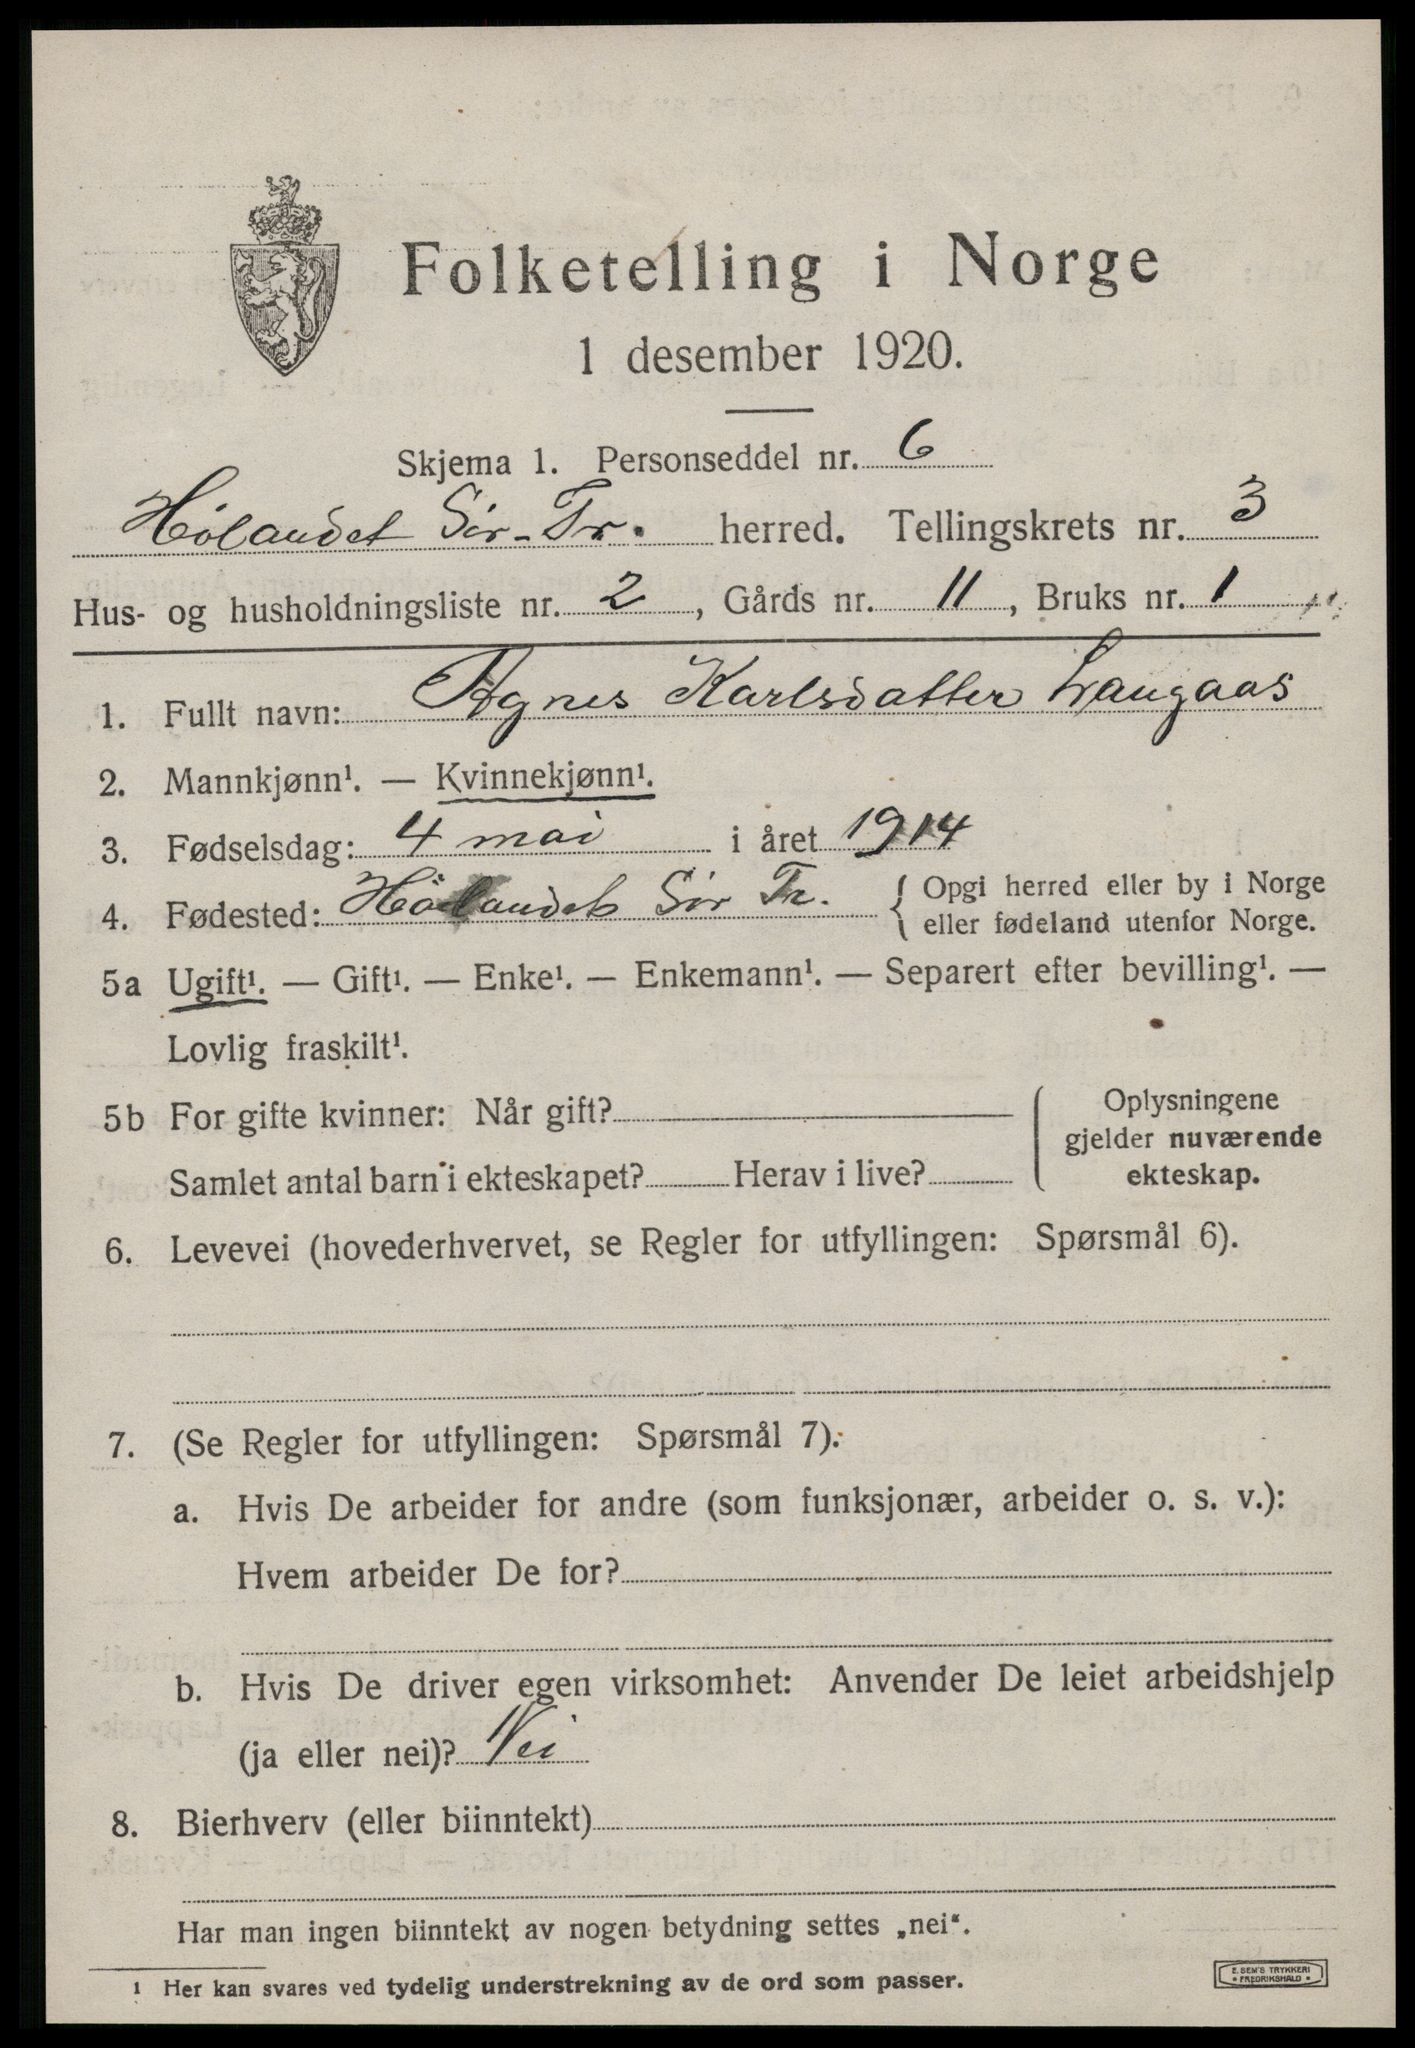 Folketelling i Norge
1 desember 1920.
Skjema 1. Personseddel nr. 6
Hølandet Sör-Tr. herred. Tellingskrets nr. 3
Hus- og husholdningsliste nr. 2, Gårds nr. 11, Bruks nr. 1
1. Fullt navn: Agnes Karlsdatter Langaas
2. Mannkjønn¹. — Kvinnekjønn¹.
3. Fødselsdag: 4 mai i året 1914
4. Fødested: Hölandet Sör Tr. { Opgi herred eller by i Norge
eller fødeland utenfor Norge.
5a Ugift¹. — Gift¹. — Enke¹. — Enkemann¹. — Separert efter bevilling¹. —
Lovlig fraskilt¹.
5b For gifte kvinner: Når gift?
Samlet antal barn i ekteskapet? Herav i live?
Oplysningene
gjelder nuværende
ekteskap.
6. Levevei (hovederhvervet, se Regler for utfyllingen: Spørsmål 6).
7. (Se Regler for utfyllingen: Spørsmål 7).
a. Hvis De arbeider for andre (som funksjonær, arbeider o. s. v.):
Hvem arbeider De for?
b. Hvis De driver egen virksomhet: Anvender De leiet arbeidshjelp
(ja eller nei)? Nei
8. Bierhverv (eller biinntekt)
Har man ingen biinntekt av nogen betydning settes „nei“.
1 Her kan svares ved tydelig understrekning av de ord som passer.
E. SEM'S TRYKKERI
• FREDRIKSHALD •